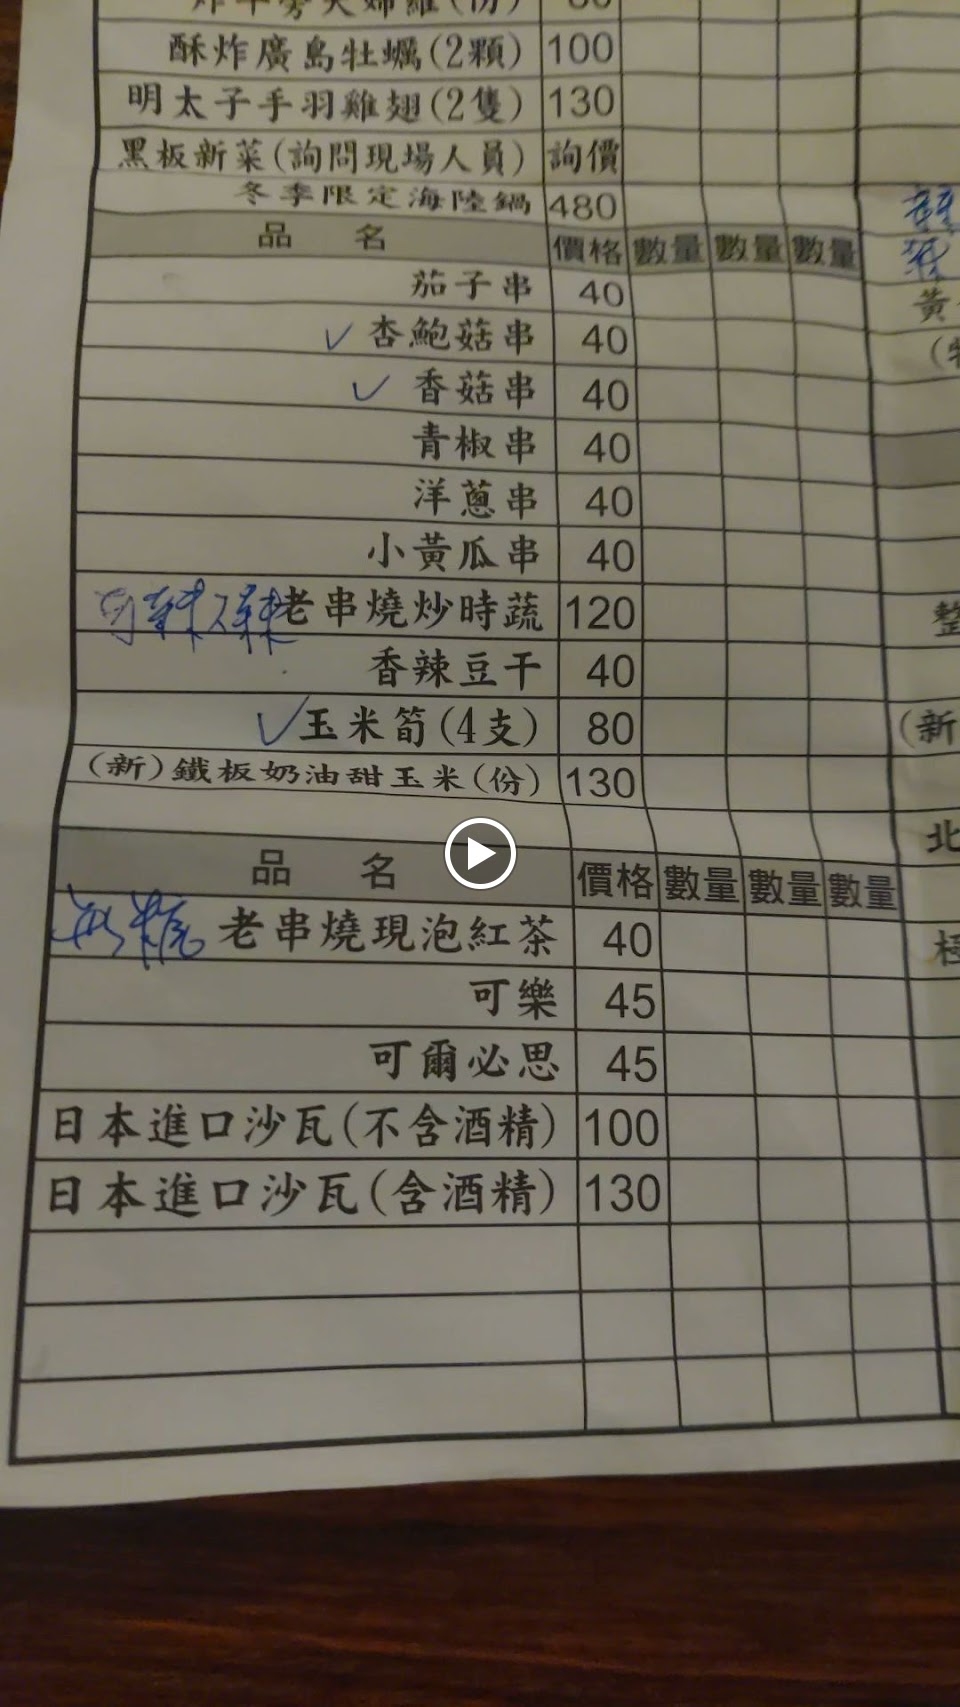 酥炸廣島牡蠣(2顆) 100
明太子手羽雞翅(2隻) 130
黑板新菜(詢問現場人員) 詢價
冬季限定海陸鍋 480
品 名 價格 數量 數量 數量
茄子串 40
✓ 杏鮑菇串 40
✓ 香菇串 40
青椒串 40
洋蔥串 40
小黃瓜串 40
老串燒炒時蔬 120
香辣豆干 40
✓ 玉米筍(4支) 80
(新)鐵板奶油甜玉米(份) 130
品 名 價格 數量 數量 數量
無糖 老串燒現泡紅茶 40
可樂 45
可爾必思 45
日本進口沙瓦(不含酒精) 100
日本進口沙瓦(含酒精) 130
黃
整
(新
北